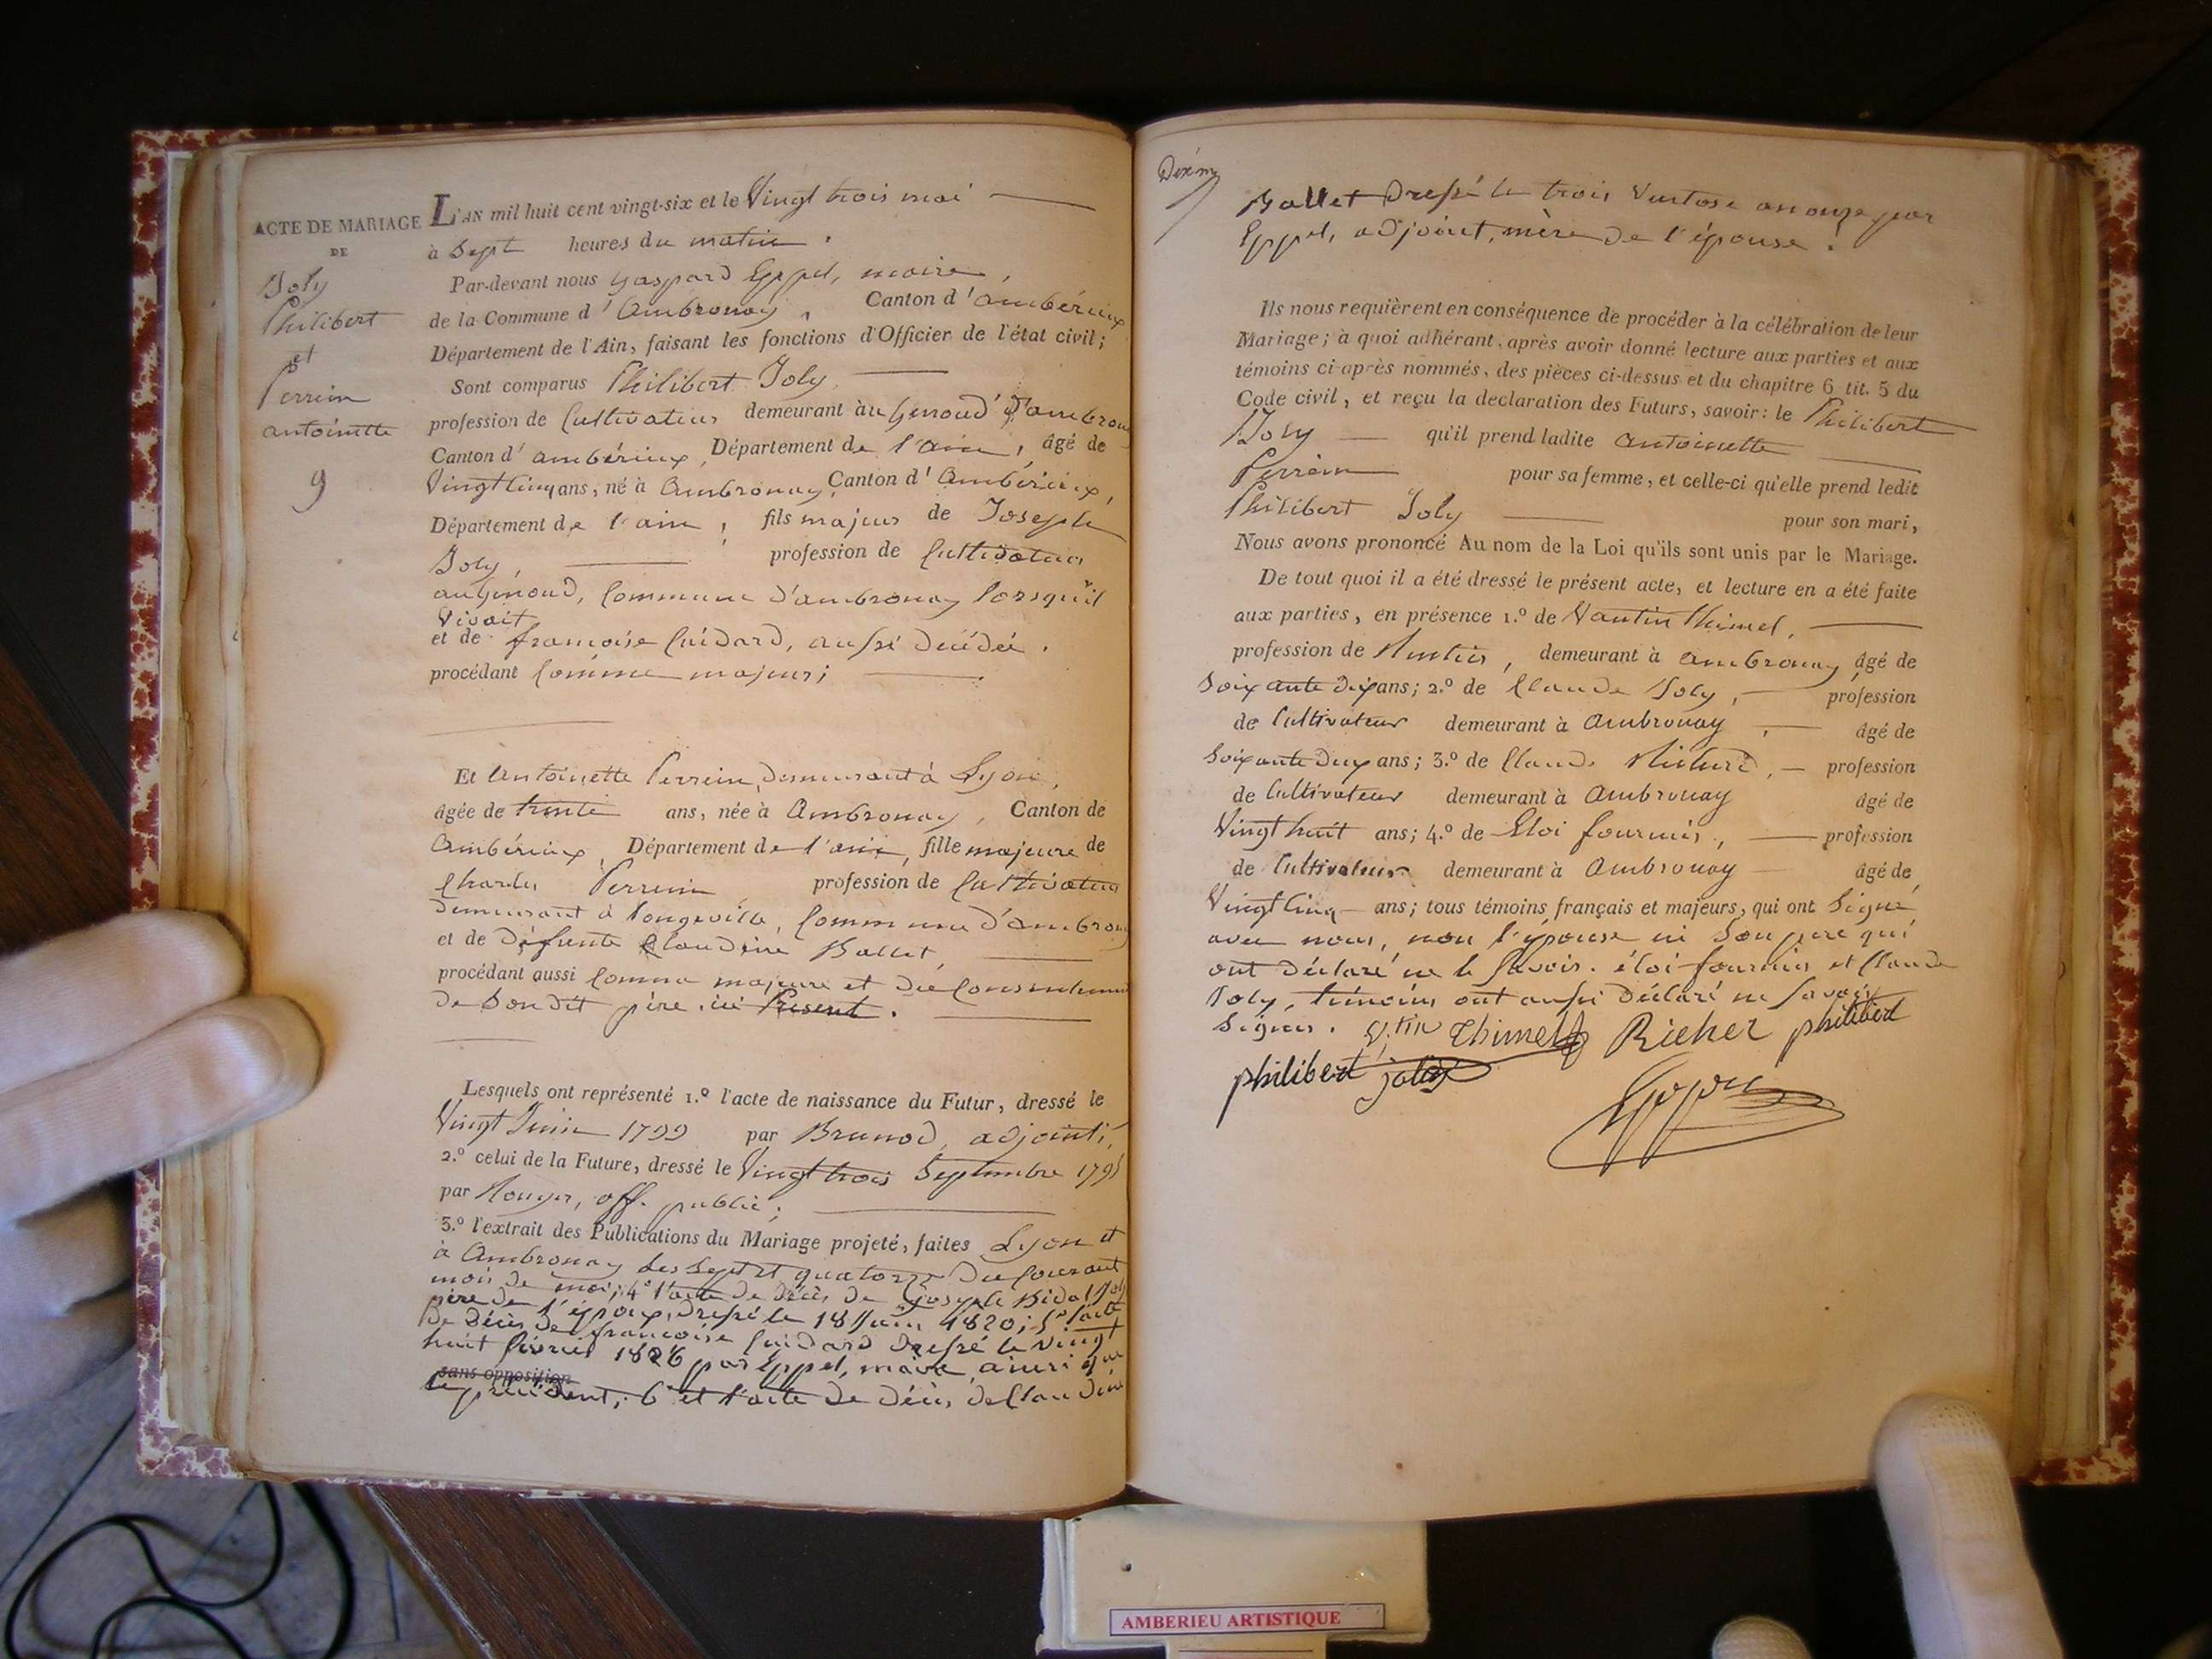 ACTE DE MARIAGE
DE
Joly
Philibert
et
Perrein
antoinette
9
L'AN mil huit cent vingt-six et le Vingt trois mai
à Sept heures du matin.
Par-devant nous Gaspard Eppel, maire,
de la Commune d'Ambronay, Canton d'Ambérieux
Département de l'Ain, faisant les fonctions d'Officier de l'état civil;
Sont comparus Philibert Joly
profession de Cultivateur demeurant au Genoud d'ambron
Canton d'ambérieux, Département de l'ain, âgé de
Vingt Cinq ans, né à Ambronay, Canton d'Ambérieux,
Département de l'ain, fils majeur de Joseph
Joly, profession de Cultivateur
au Genoud, Commune d'ambronay lorsqu'il
Vivait
et de francoise Cuidard, aussi décédée.
procédant Comme majeur;
Et Antoinette Perrein, demeurant à Lyon,
âgée de trente ans, née à Ambronay, Canton de
Ambérieux, Département de l'ain, fille majeure de
Charles Perrein profession de Cultivateur
demeurant à Longeville, Commune d'ambrony
et de défunte Claudine Ballet,
procédant aussi Comme majeure et du Consentement
de Son dit père, ici Présent.
Lesquels ont représenté 1.º l'acte de naissance du Futur, dressé le
Vingt Juin 1799 par Brunod, adjoint;
2.º celui de la Future, dressé le Vingt trois Septembre 1795
par off. public;
3.º l'extrait des Publications du Mariage projeté, faites Lyon et
à Ambronay les Sept et quatorze du Courant
mois de mai; 4º l'acte de décès de Joseph Joly
père de l'époux, dressé le 18 Juin 1820; 5º l'acte
De décès de francoise Cuidard dressé le vingt
huit février 1826 par Eppel, maire, ainsi que
sans opposition
le précédent; 6º et l'acte de décès de Claudine
Ballet dressé le trois Ventose an onze par
Eppel, adjoint, mère de l'épouse.
Ils nous requièrent en conséquence de procéder à la célébration de leur
Mariage; à quoi adhérant, après avoir donné lecture aux parties et aux
témoins ci-après nommés, des pièces ci-dessus et du chapitre 6 tit. 5 du
Code civil, et reçu la declaration des Futurs, savoir: le Philibert
Joly qu'il prend ladite Antoinette
Perrein pour sa femme, et celle-ci qu'elle prend ledit
Philibert Joly pour son mari,
Nous avons prononcé Au nom de la Loi qu'ils sont unis par le Mariage.
De tout quoi il a été dressé le présent acte, et lecture en a été faite
aux parties, en présence 1.º de Vautin Thimel,
profession de Rentier, demeurant à ambronay âgé de
Soixante dix ans; 2.º de Claude Joly, profession
de Cultivateur demeurant à Ambronay, âgé de
Soixante deux ans; 3.º de Claude profession
de Cultivateur demeurant à Ambronay âgé de
Vingt huit ans; 4.º de Eloi fournier, profession
de Cultivateur demeurant à Ambronay âgé de
Vingt Cinq ans; tous témoins français et majeurs, qui ont Signé
avec nous, non l'épouse ni Son père qui
ont déclaré ne le Savoir. éloi fournier et Claude
Joly, témoins ont aussi déclaré ne Savoir
Signer. Thimel Richer philibert
philibert joly
Eppel
AMBERIEU ARTISTIQUE